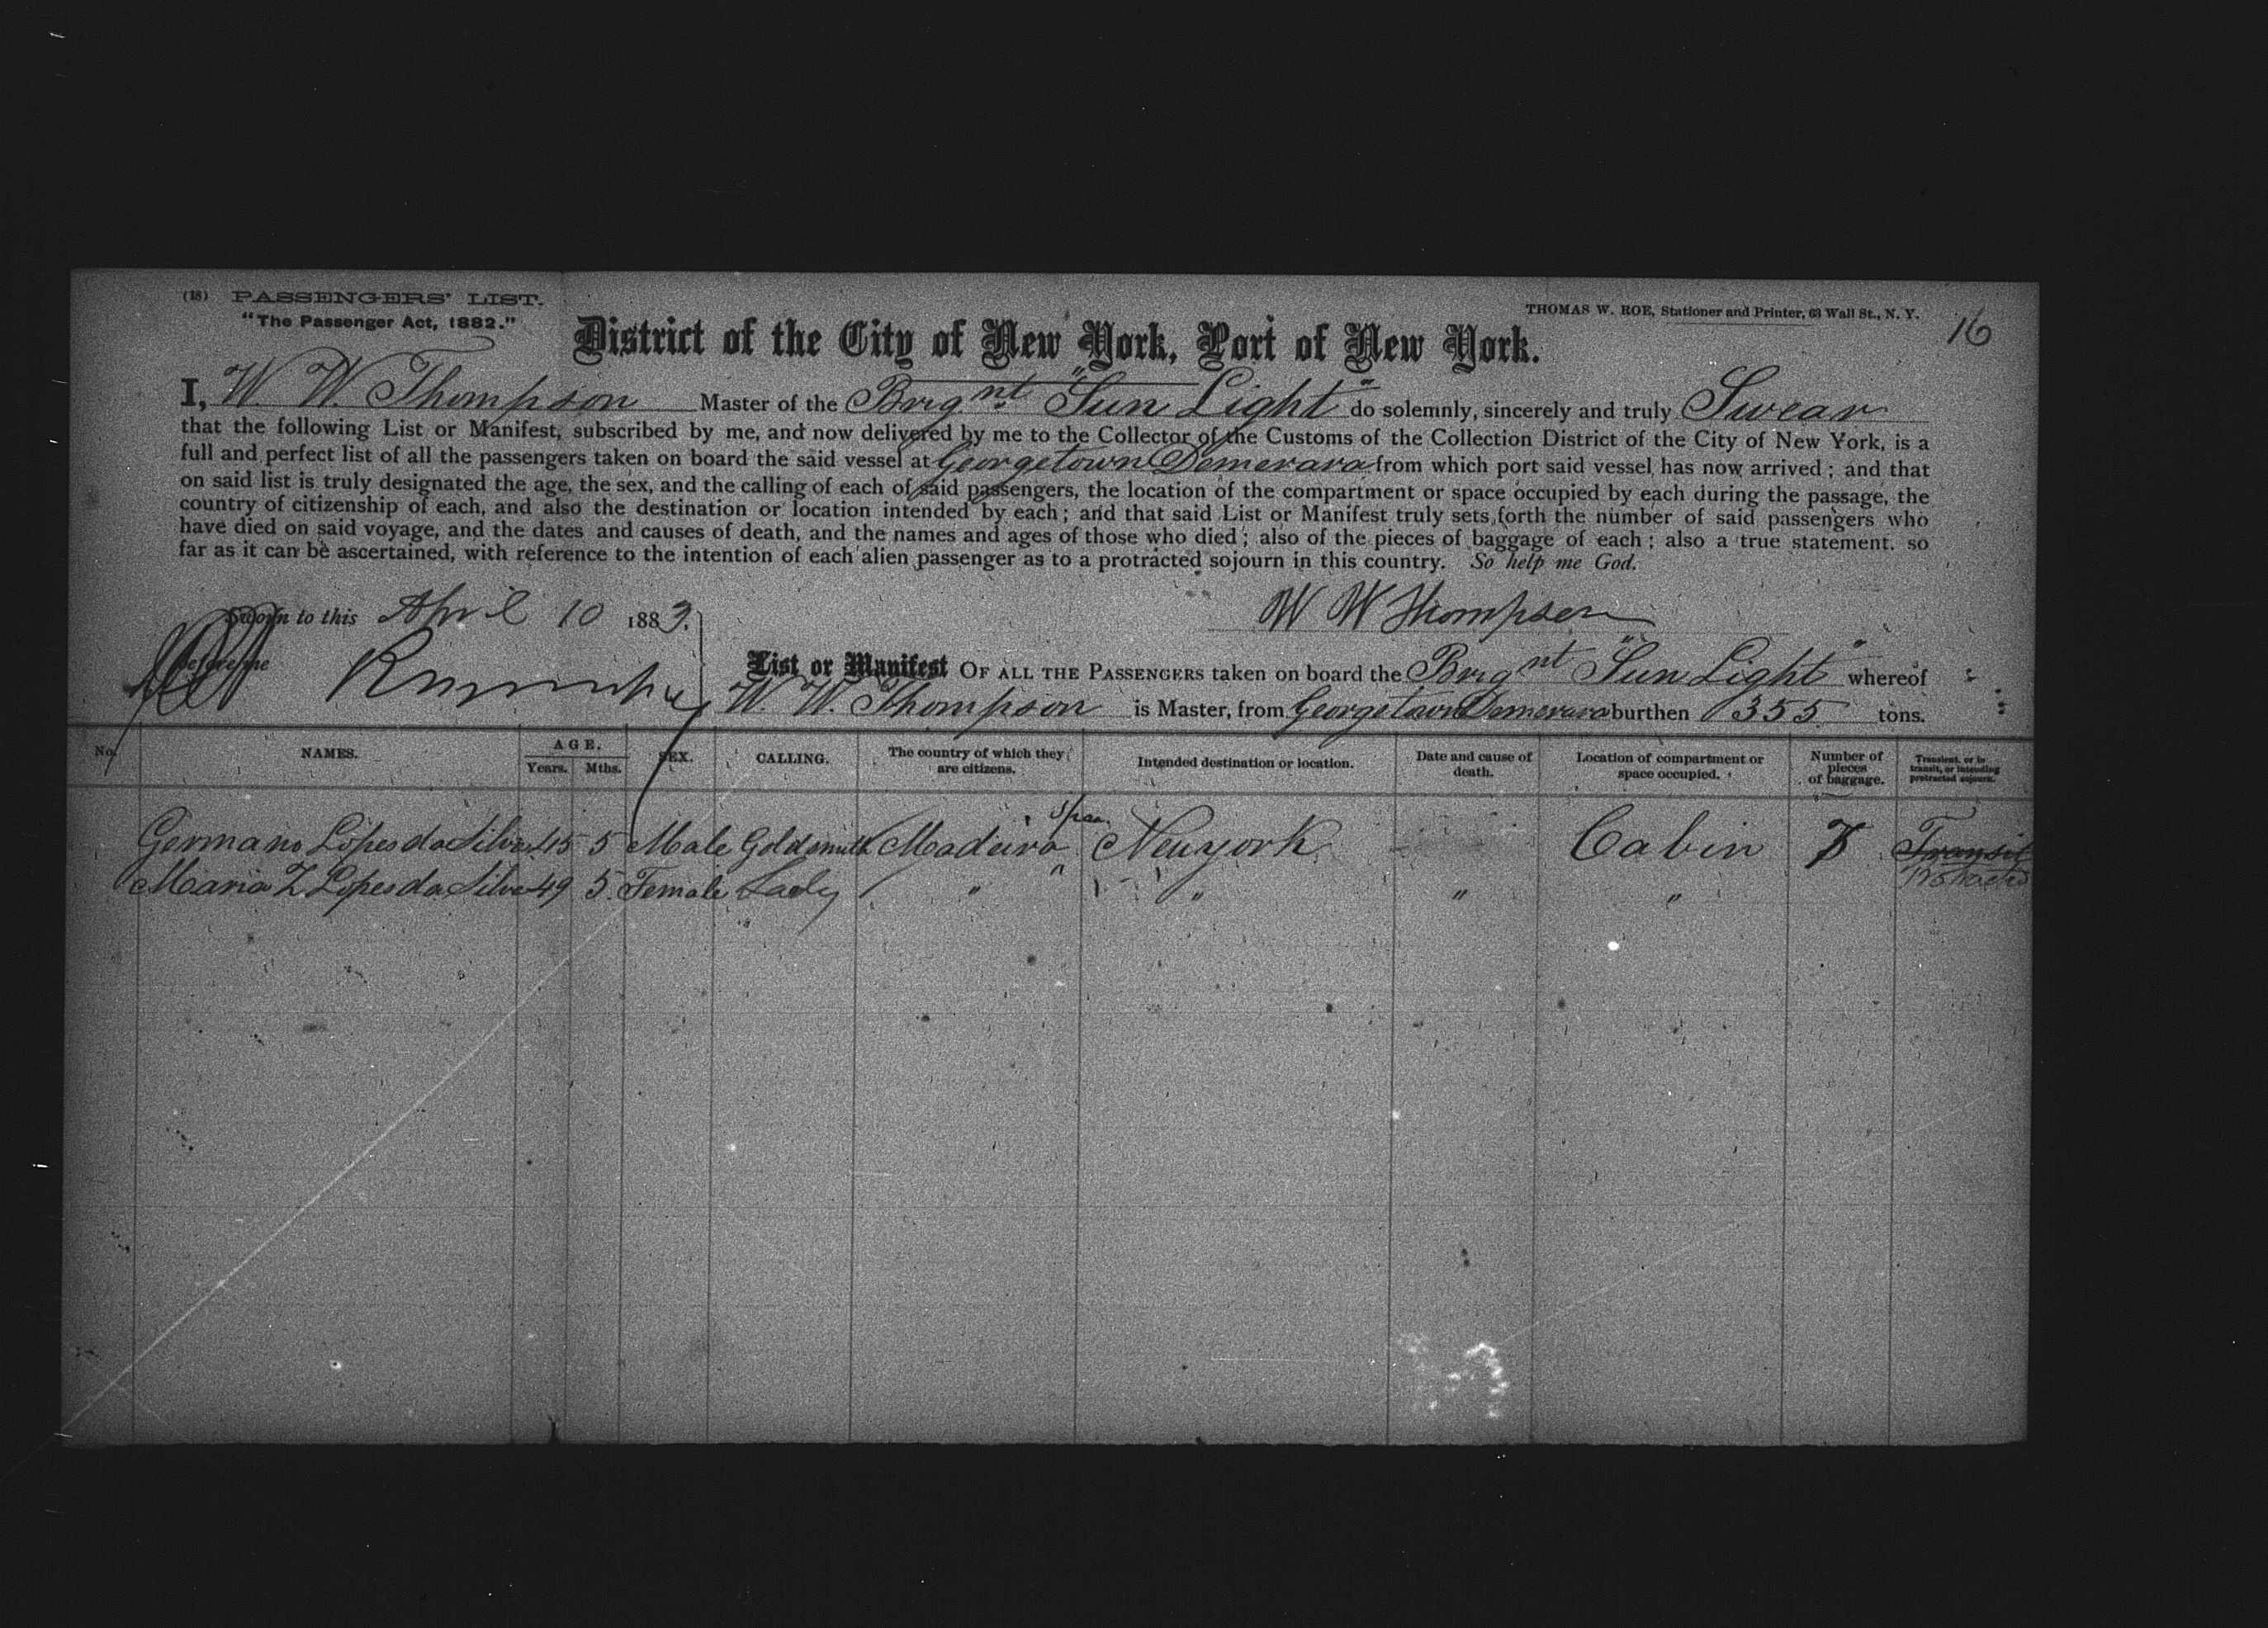 (18) PASSENGERS' LIST.
"The Passenger Act, 1882."
THOMAS W. ROE, Stationer and Printer, 63 Wall St., N. Y.
16
District of the City of New York, Port of New York.
I, W. W. Thompson Master of the Brig nt "Sun Light" do solemnly, sincerely and truly Swear
that the following List or Manifest, subscribed by me, and now delivered by me to the Collector of the Customs of the Collection District of the City of New York, is a
full and perfect list of all the passengers taken on board the said vessel at Georgetown Demerara from which port said vessel has now arrived; and that
on said list is truly designated the age, the sex, and the calling of each of said passengers, the location of the compartment or space occupied by each during the passage, the
country of citizenship of each, and also the destination or location intended by each; and that said List or Manifest truly sets forth the number of said passengers who
have died on said voyage, and the dates and causes of death, and the names and ages of those who died; also of the pieces of baggage of each; also a true statement, so
far as it can be ascertained, with reference to the intention of each alien passenger as to a protracted sojourn in this country. So help me God.
Sworn to this April 10 1883.
W W Thompson
before me
List or Manifest OF ALL THE PASSENGERS taken on board the Brig nt "Sun Light" whereof
W. W. Thompson is Master, from Georgetown Demerara burthen 355 tons.
No. NAMES. AGE. Years. Mths. SEX. CALLING. The country of which they are citizens. Intended destination or location. Date and cause of death. Location of compartment or space occupied. Number of pieces of baggage. Transient, or in transit, or intending protracted sojourn.
Germano Lopes da Silva 45 5 Male Goldsmith Madeira Span New york Cabin 7 Transit
Protracted
Maria Z Lopes da Silva 49 5 Female Lady " " " " "